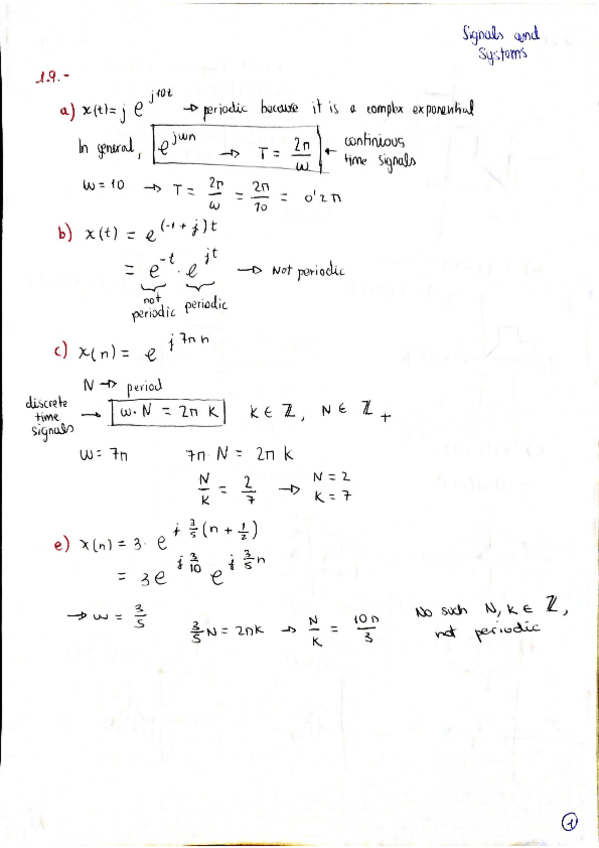 Signals and
Systems
1.9.-
a) x(t)= j e^{j10t} → periodic because it is a complex exponential
In general, e^{jwn} → T = 2π/ω ← continious
time signals
ω = 10 → T = 2π/ω = 2π/10 = 0'2π
b) x(t) = e^{(-1 + j)t}
= e^{-t} · e^{jt} → Not periodic
not
periodic periodic
c) x(n) = e^{j7πn}
N → period
discrete
time
signals → ω·N = 2π K K ∈ ℤ, N ∈ ℤ+
ω = 7π 7π·N = 2π k
N/K = 2/7 → N = 2
K = 7
e) x(n) = 3· e^{j 3/5 (n + 1/2)}
= 3e^{j 3/10} e^{j 3/5 n}
→ ω = 3/5 3/5 N = 2πK → N/K = 10π/3 No such N, K ∈ ℤ,
not periodic
1